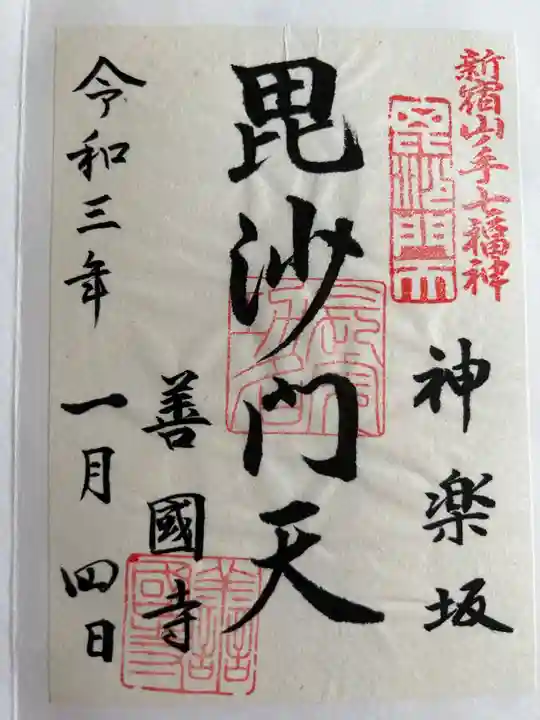 新宿山ノ手七福神
毘沙門天
神楽坂
毘沙門天
善國寺
善國寺
令和三年 一月四日